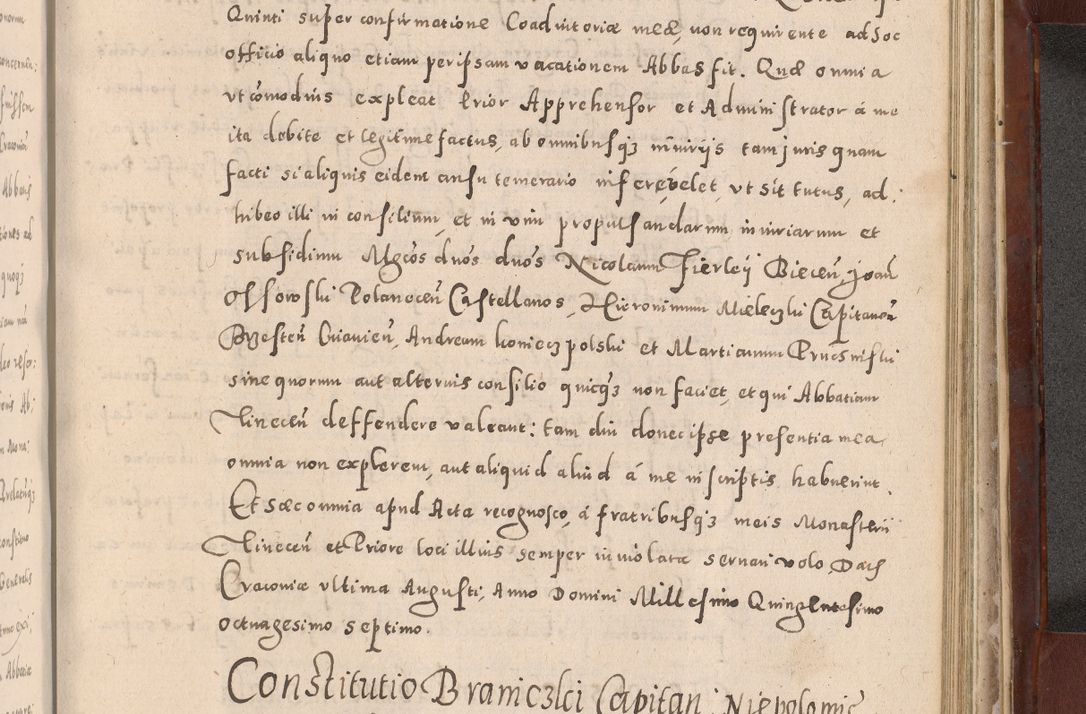 Quinti super confirmatione Coadiutoriæ meæ, non requirente ad hoc
officio aliquo etiam per ipsam vacationem Abbas fit. Quæ omnia
vt com̄odius expleat Prior Apprehensor et Administrator á me
ita debite et legitime factus, ab omnibusq3 iniurijs tam juris quam
facti si aliquis eidem ausu temerario inferre velet, vt sit tutus, ad
hibeo illi in consilium, et in vim propulsandarum iniuriarum et
subsidium Mgcos duos duos Nicolaum Fierleij Biecen̄ Joan̄
Ossowski Polanecen̄ Castellanos, Hieronimum Mieleczki Capitaneū
Brzesten̄ Cuiauien̄, Andream konieczpolski et Martianum
sine quorum aut alterius consilio quicq3 non faciet, et qui Abbatiam
Tinecen̄ deffendere valeant: tam diu donec ipse presentia mea
omnia non explerem, aut aliquid aliud á me in scriptis habuerint.
Et hæc omnia apud Acta recognosco, á fratribusq3 meis Monasterii
Tinecen̄ et Priore loci illius semper inuiolata seruari volo. Dat
Cracouiæ vltima Augusti, Anno Domini Millesimo Quingentesimo
octuagesimo septimo.
Constitutio Braniczki Capitan: Niepolomic